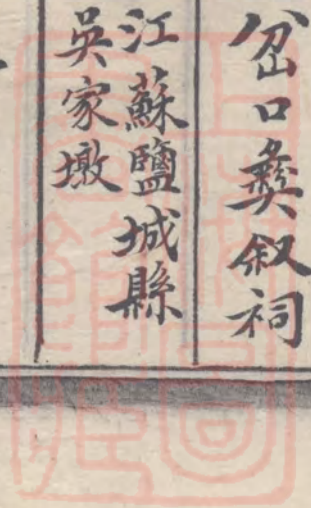 岔口彝叙祠
江蘇鹽城縣
吳家墩